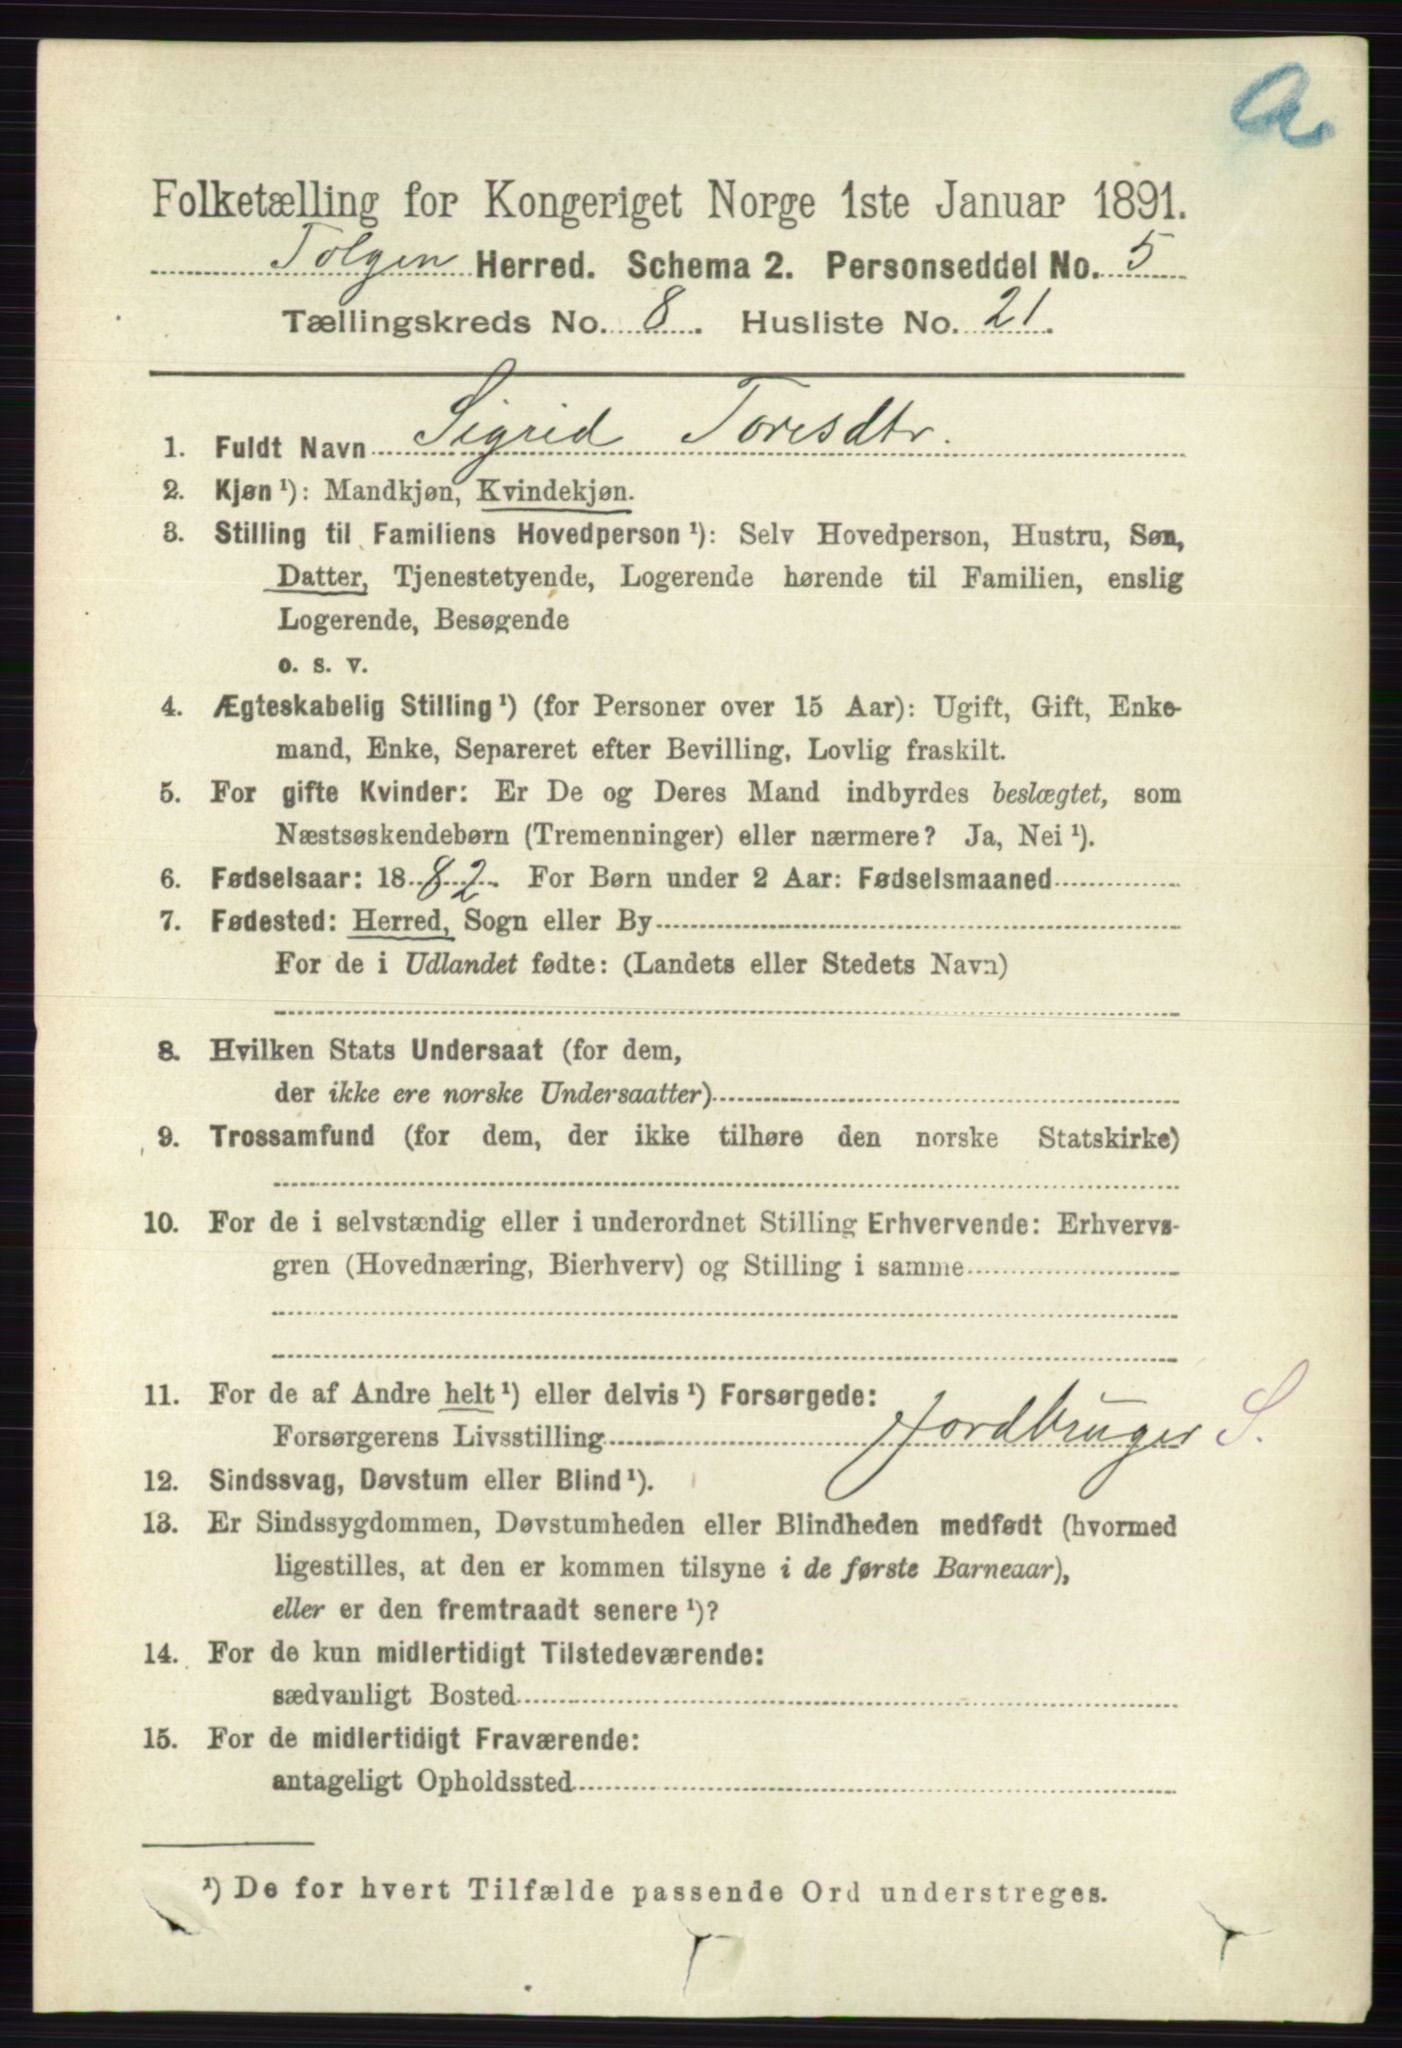 a
Folketælling for Kongeriget Norge 1ste Januar 1891.
Tolgen Herred. Schema 2. Personseddel No. 5
Tællingskreds No. 8. Husliste No. 21.
1. Fuldt Navn Sigrid Toresdtr.
2. Kjøn ¹): Mandkjøn, Kvindekjøn.
3. Stilling til Familiens Hovedperson ¹): Selv Hovedperson, Hustru, Søn,
Datter, Tjenestetyende, Logerende hørende til Familien, enslig
Logerende, Besøgende
o. s. v.
4. Ægteskabelig Stilling ¹) (for Personer over 15 Aar): Ugift, Gift, Enke-
mand, Enke, Separeret efter Bevilling, Lovlig fraskilt.
5. For gifte Kvinder: Er De og Deres Mand indbyrdes beslægtet, som
Næstsøskendebørn (Tremenninger) eller nærmere? Ja, Nei ¹).
6. Fødselsaar: 1882. For Børn under 2 Aar: Fødselsmaaned
7. Fødested: Herred, Sogn eller By
For de i Udlandet fødte: (Landets eller Stedets Navn)
8. Hvilken Stats Undersaat (for dem,
der ikke ere norske Undersaatter)
9. Trossamfund (for dem, der ikke tilhøre den norske Statskirke)
10. For de i selvstændig eller i underordnet Stilling Erhvervende: Erhvervs-
gren (Hovednæring, Bierhverv) og Stilling i samme
11. For de af Andre helt ¹) eller delvis ¹) Forsørgede:
Forsørgerens Livsstilling Jordbruger S.
12. Sindssvag, Døvstum eller Blind ¹).
13. Er Sindssygdommen, Døvstumheden eller Blindheden medfødt (hvormed
ligestilles, at den er kommen tilsyne i de første Barneaar),
eller er den fremtraadt senere ¹)?
14. For de kun midlertidigt Tilstedeværende:
sædvanligt Bosted
15. For de midlertidigt Fraværende:
antageligt Opholdssted
¹) De for hvert Tilfælde passende Ord understreges.